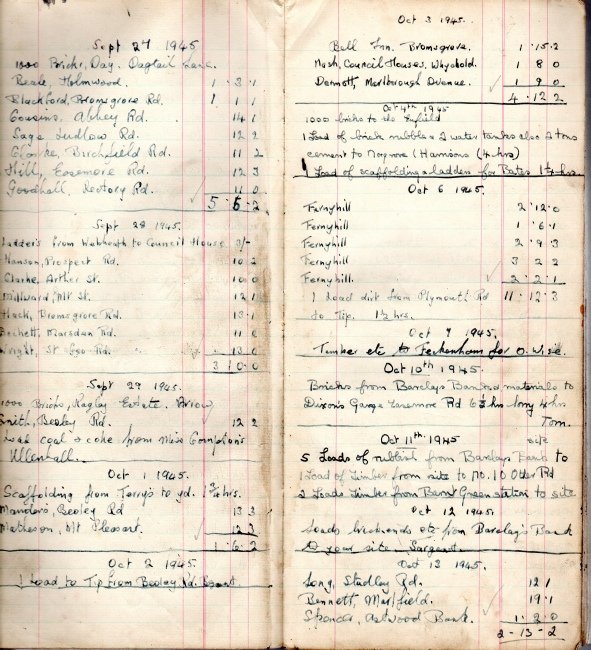 Sept 27 1945
1000 Bricks, Day, Dagtail Lane.
Beale, Holmwood. 1 . 3 . 1
Blackford, Bromsgrove Rd. 1 1 1
Cousins, Abbey Rd. 14 1
Sage Ludlow Rd. 12 2
Clarke, Birchfield Rd. 11 2
Hill, Foxmore Rd. 12 3
Goodhall, Rectory Rd. 11 0
5 . 6 . 2
Sept 28 1945.
Ladders from Webheath to Council House 3/-
Hanson, Prospect Rd. 10 2
Clarke, Arther St. 10 0
Millward, Mt St. 12
Bromsgrove Rd. 13 1
Beckett, Marsden Rd. 11 0
Wright, St Rd. 13 0
3 10 0
Sept 29 1945.
1000 Bricks, Ragley Estate. Arrow
Smith, Beoley Rd. 12 2
Load coal & coke from Miss
Ullenhall.
Oct 1 1945.
Scaffolding from Terry's to yd. hrs.
Manders, Beoley Rd 13 3
Matheson, Mt Pleasant. 12 3
1 . 6 . 2
Oct 2 1945
1 Load to Tip from Beoley Rd.
Oct 3 1945.
Bell Inn. Bromsgrove. 1 . 15 . 2
Nash, Council Houses, Whybold. 1 8 0
Dermott, Marlborough Avenue. 1 9 0
4 . 12 2
Oct 4th 1945
1000 bricks to the Enfield
1 Load of brick rubble & 2 water tanks also 2 tons
cement to (Harrisons (4 hrs)
1 Load of scaffolding & ladders for Bates hrs.
Oct 6 1945.
Fernyhill 2 . 12 . 0
Fernyhill 1 . 6 . 1
Fernyhill 2 . 9 . 3
Fernyhill 3 2 2
Fernyhill. 2 . 2 . 1
1 Load dirt from Plymouth Rd 11 . 12 . 3
to Tip. 1½ hrs.
Oct 9 1945.
Timber etc to Feckenham for O. Wise.
Oct 10th 1945.
Bricks from Barclays Bank & materials to
Dixon's Garage Evesmore Rd 6½ hrs lorry 4 hrs
Tom.
Oct 11th 1945 site
5 Loads of rubbish from Barclays Bank to
1 Load of timber from site to no. 10 Other Rd
2 Loads timber from Bernt Green station to site
Oct 12 1945.
Loads brickends etc from Barclay's Bank
to your site. Sargent.
Oct 13 1945.
Long, Studley Rd. 12 1
Bennett, Mayfield. 19 . 1
Spencer, Astwood Bank. 1 . 2 . 0
2 - 13 - 2